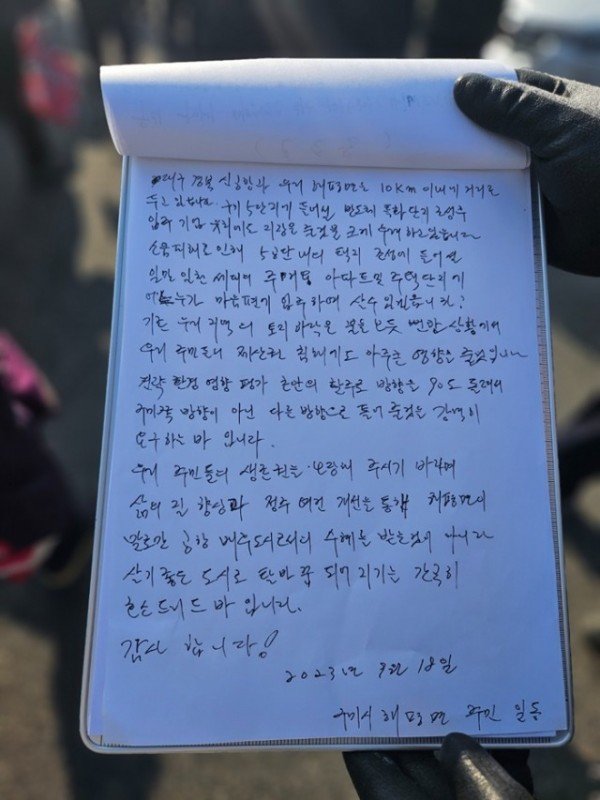 대구 경북 신공항과 우리 해평면은 10km 이내에 거리를
두고 있습니다. 구미 5단지가 들어설 반도체 특화단지 조성후
입주 기업 유치에도 지장을 줄것을 크게 우려하고있습니다
소음피해로 인해 5공단 내의 택지 조성에 들어설
일만 일천 세대의 주택및 아파트및 주택단지가
누가 마음편게 입주하여 살수 있겠습니까?
기존 우리 지역의 토지하락은 불을 보듯 뻔한 상황이며
우리 주민들의 재산권 침해가 되 영향을 줄것입니다
전략 환경 영향 평가 초안의 활주로 방향을 90도 틀래서
구미쪽 방향이 아닌 다른 방향으로 틀어 줄것을 강력히
요구하는 바 입니다.
우리 주민들의 생존권을 보장해 주시기 바라며
삶의 질 향상과 정주 여건 개선을 통해 해평면이
말로만 공항 배후도시로서의 수혜를 받는것이 아니라
살기좋은 도시로 탈바꿈 되어 지기를 간곡히
호소드리는 바 입니다.
감사 합니다!
2023년 3월 18일
구미시 해평면 주민 일동